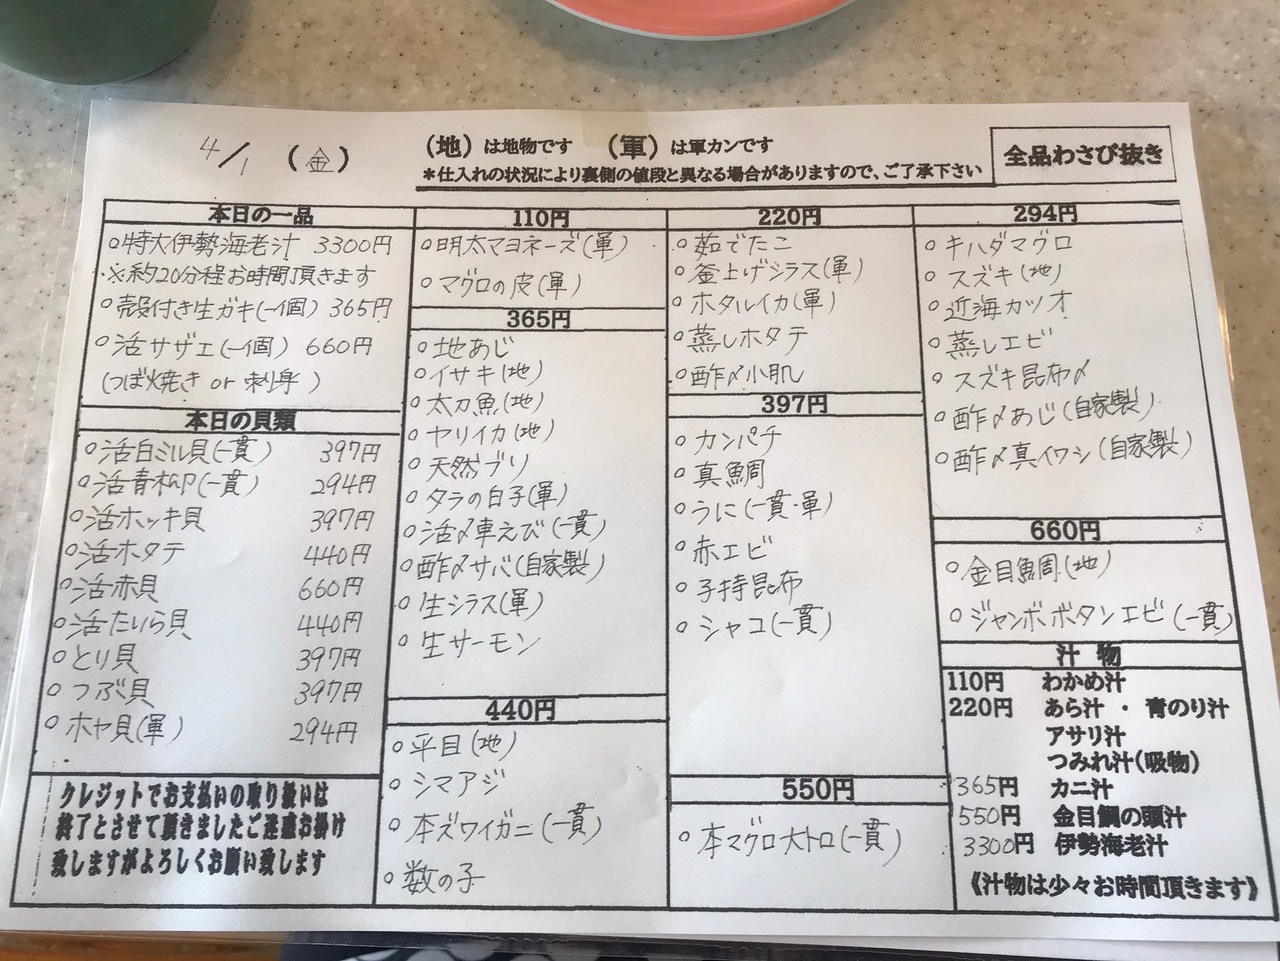 4/1 (金)
(地)は地物です (軍)は軍カンです
*仕入れの状況により裏側の値段と異なる場合がありますので、ご了承下さい
全品わさび抜き
本日の一品
○特大伊勢海老汁 3300円
※約20分程お時間頂きます
○殻付き生ガキ(一個) 365円
○活サザエ(一個) 660円
(つぼ焼き or 刺身)
本日の貝類
○活白ミル貝(一貫) 397円
○活青柳(一貫) 294円
○活ホッキ貝 397円
○活ホタテ 440円
○活赤貝 660円
○活たいら貝 440円
○とり貝 397円
○つぶ貝 397円
○ホヤ貝(軍) 294円
クレジットでお支払いの取り扱いは
終了とさせて頂きましたご迷惑お掛け
致しますがよろしくお願い致します
110円
○明太マヨネーズ(軍)
○マグロの皮(軍)
365円
○地あじ
○イサキ(地)
○太刀魚(地)
○ヤリイカ(地)
○天然ブリ
○タラの白子(軍)
○活〆車えび(一貫)
○酢〆サバ(自家製)
○生シラス(軍)
○生サーモン
440円
○平目(地)
○シマアジ
○本ズワイガニ(一貫)
○数の子
220円
○茹でたこ
○釜上げシラス(軍)
○ホタルイカ(軍)
○蒸しホタテ
○酢〆小肌
397円
○カンパチ
○真鯛
○うに(一貫・軍)
○赤エビ
○子持昆布
○シャコ(一貫)
550円
○本マグロ大トロ(一貫)
294円
○キハダマグロ
○スズキ(地)
○近海カツオ
○蒸しエビ
○スズキ昆布〆
○酢〆あじ(自家製)
○酢〆真イワシ(自家製)
660円
○金目鯛(地)
○ジャンボボタンエビ(一貫)
汁物
110円 わかめ汁
220円 あら汁・青のり汁
アサリ汁
つみれ汁(吸物)
365円 カニ汁
550円 金目鯛の頭汁
3300円 伊勢海老汁
《汁物は少々お時間頂きます》